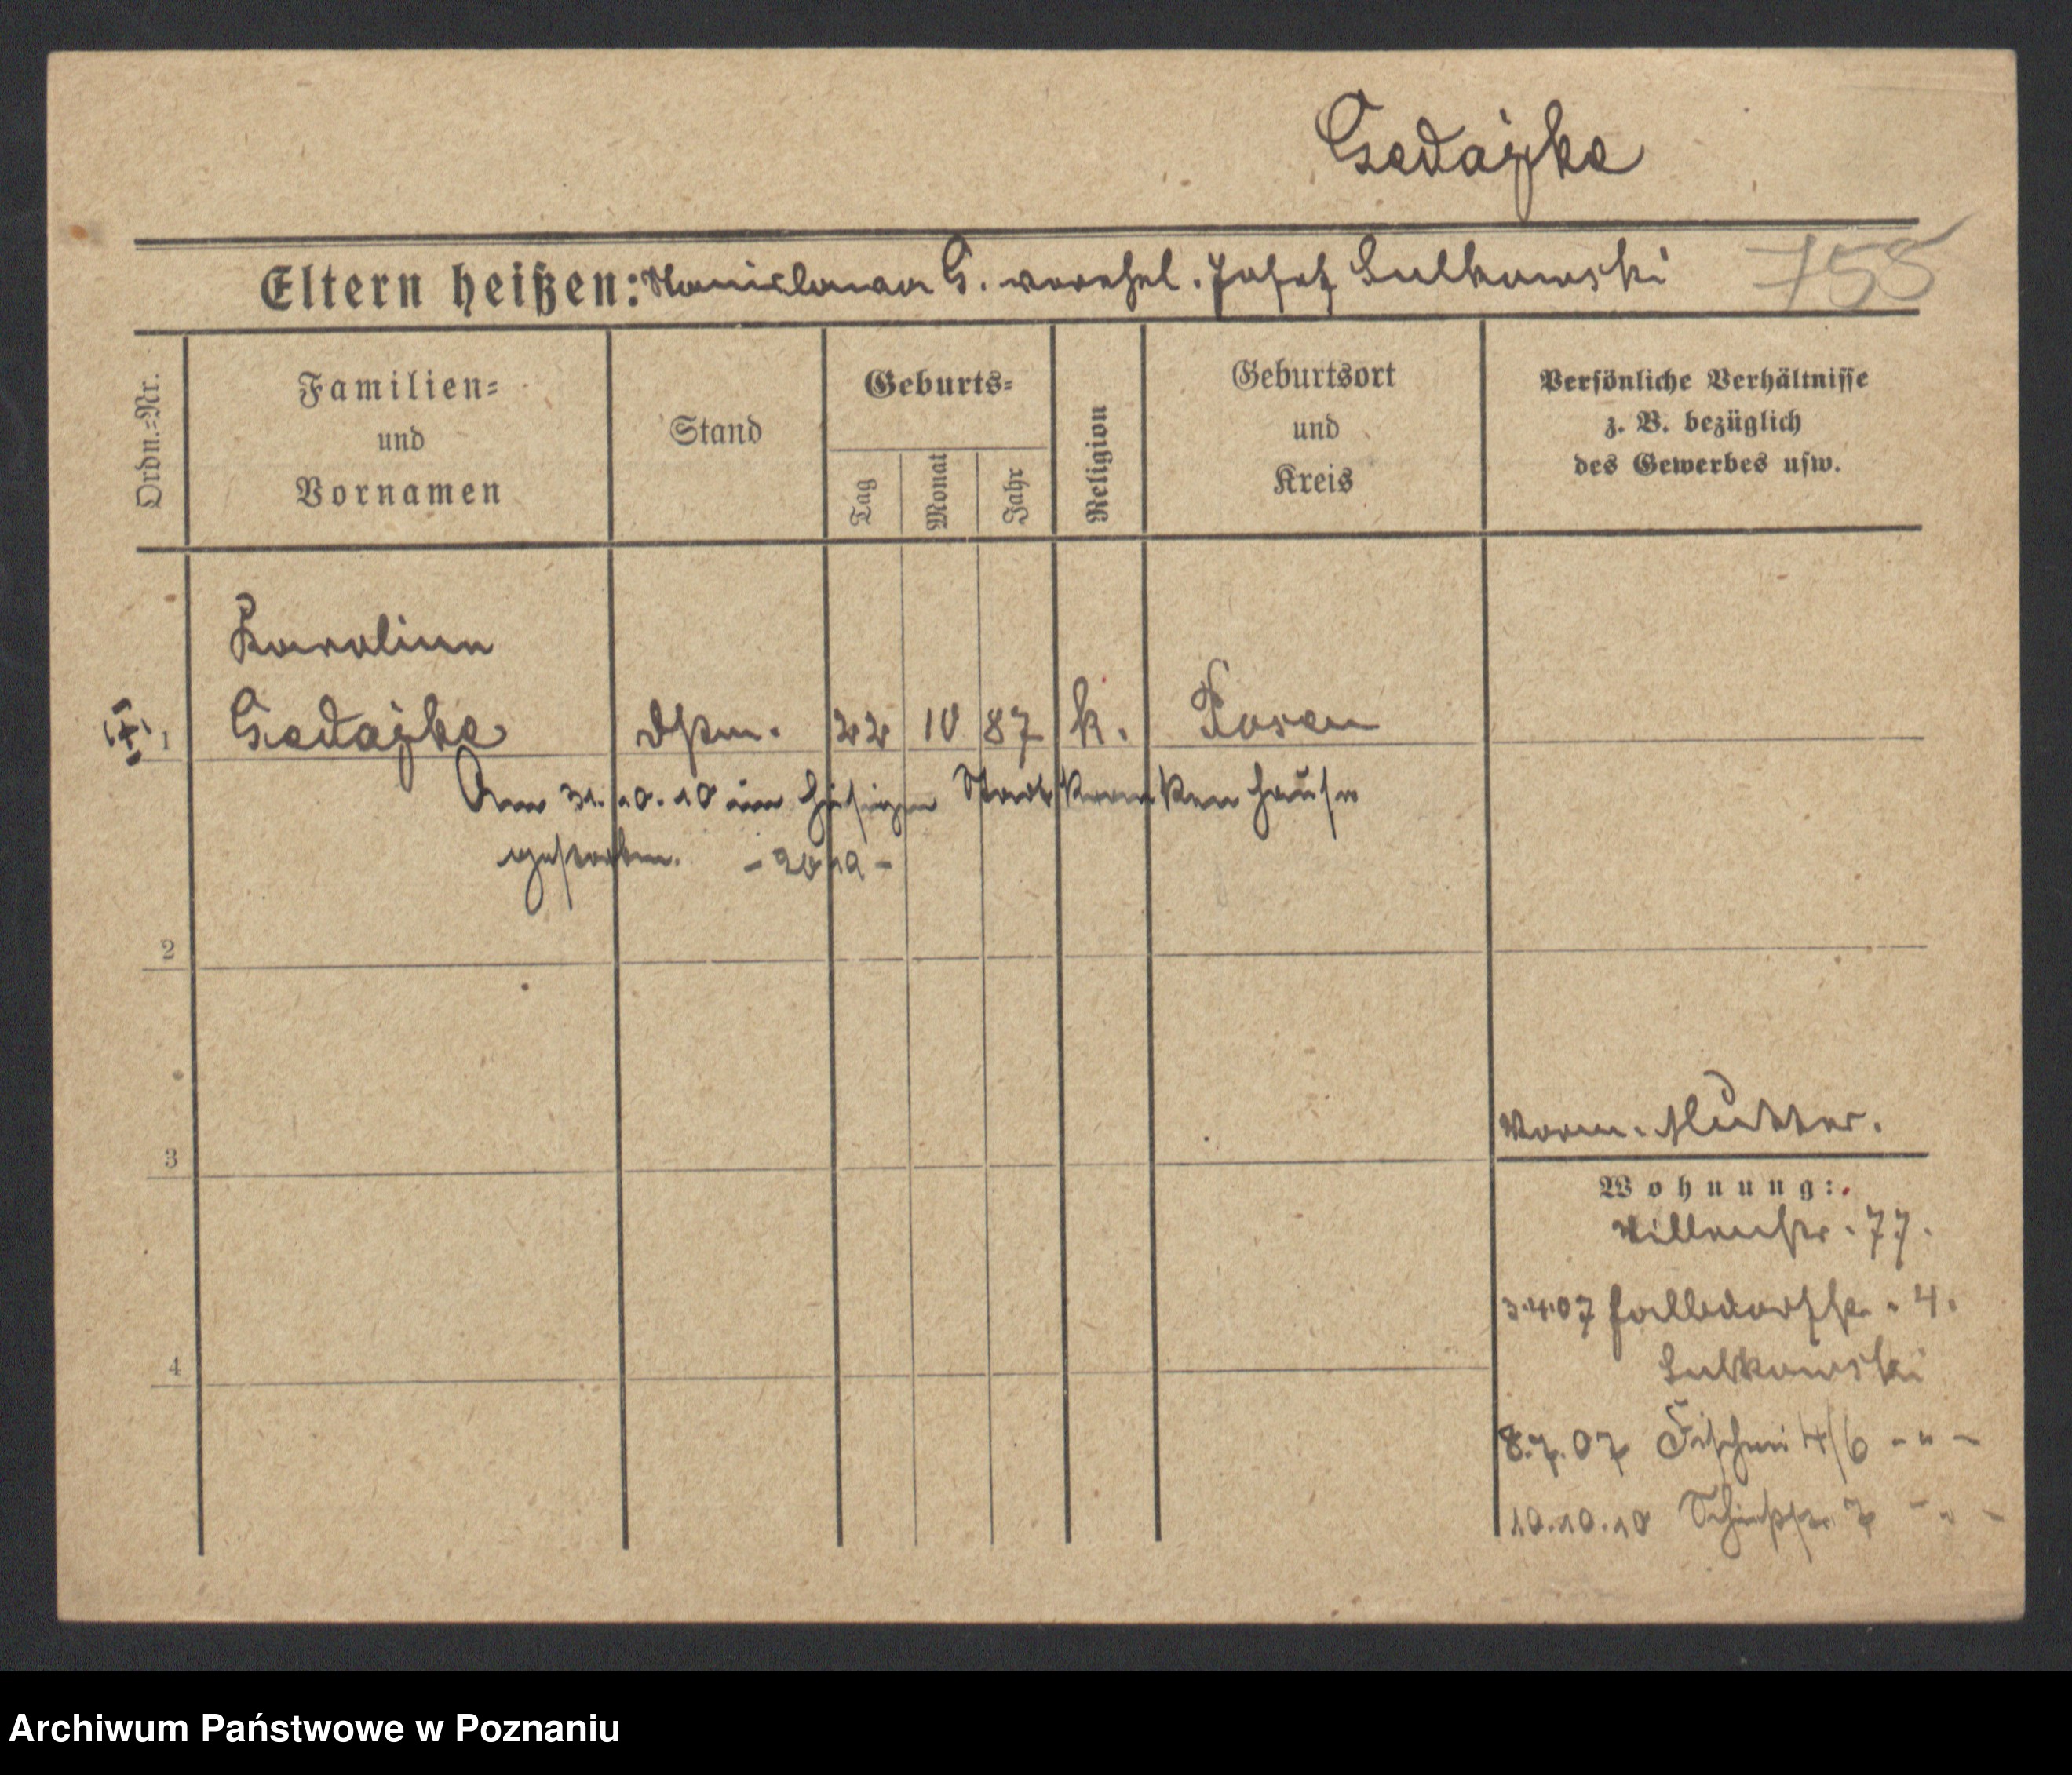 755
Eltern heißen: Stanislawa G. verehel. Josef Sulkowski
Ordn.-Nr.
Familien-
und
Vornamen
Stand
Geburts-
Tag
Monat
Jahr
Religion
Geburtsort
und
Kreis
Persönliche Verhältnisse
z. B. bezüglich
des Gewerbes usw.
Karoline
1 22 10 87 k. Posen
Am 31.10.10 im hiesigen Stadtkrankenhause
gestorben.
2
3
4
Mutter.
Wohnung:
77.
3.4.07 4.
Sulkowski
8.7.07 Fischerei 4/6 - " -
10.10.10 7 - " -
Archiwum Państwowe w Poznaniu